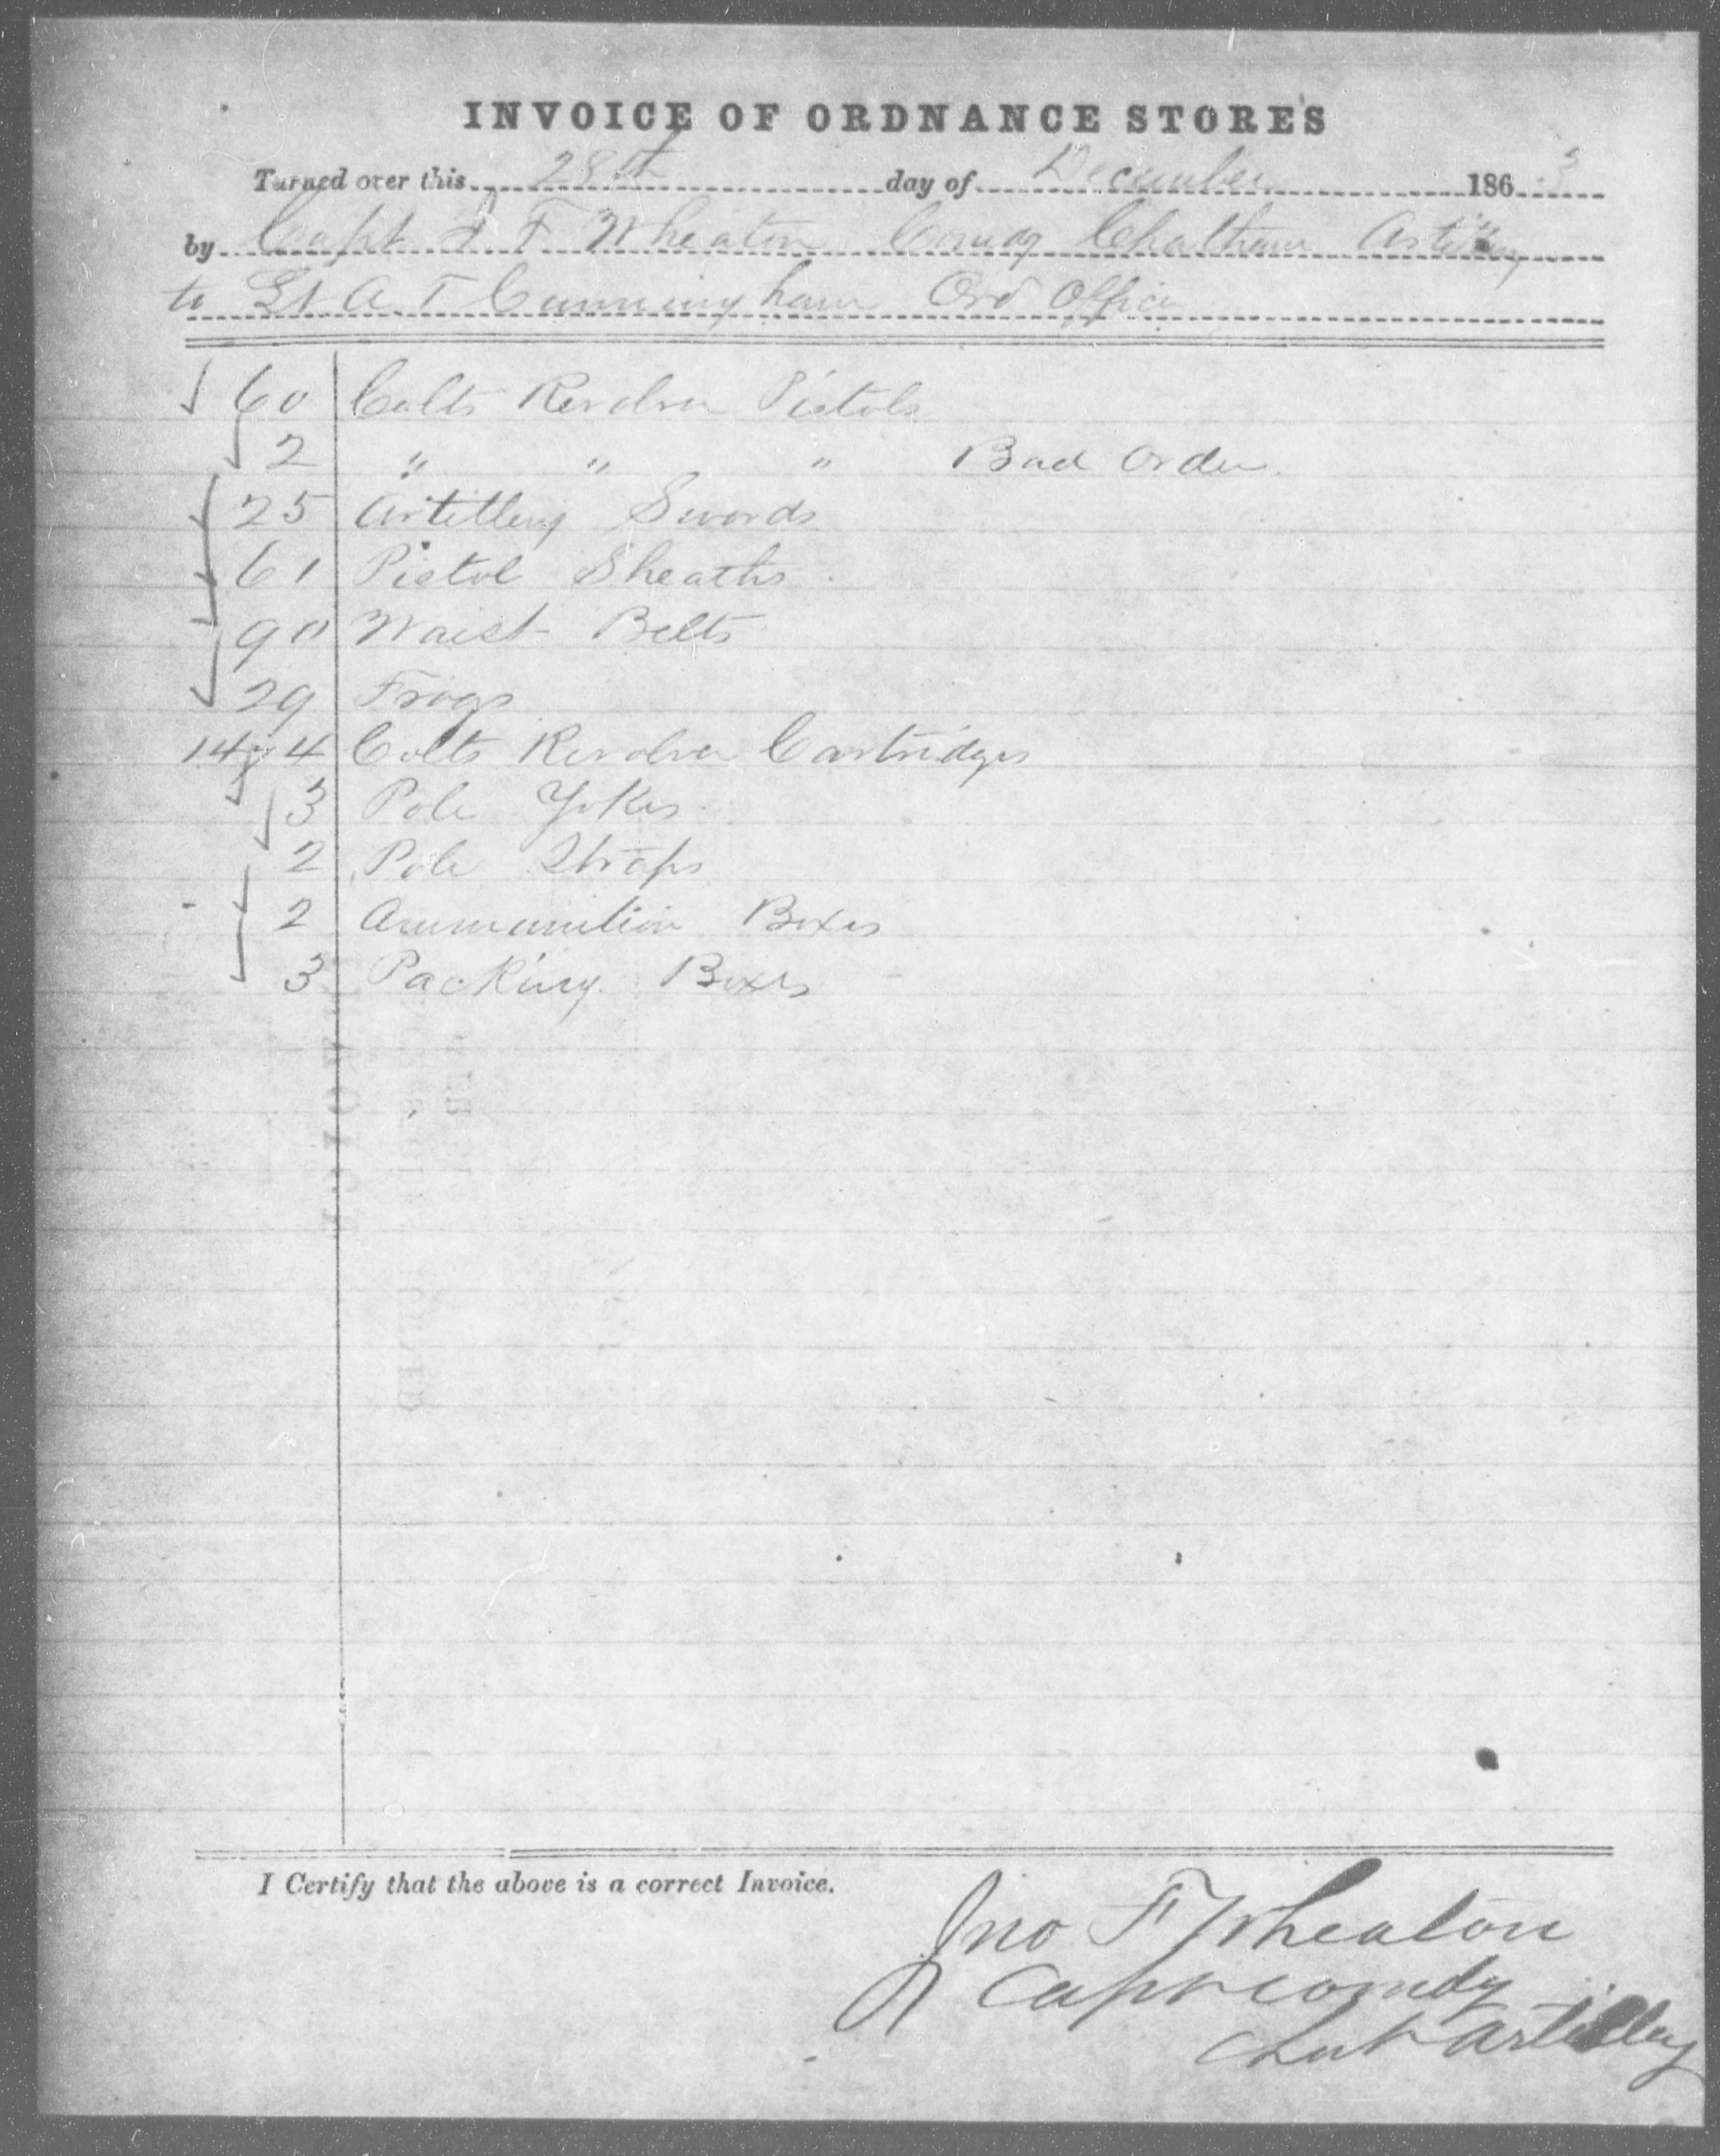 INVOICE OF ORDNANCE STORES
Turned over this 28th day of December 1863
by Capt J F Wheaton Comdg Chatham Artillery
to Lt A T Cunningham Ord Officer
60 Colts Revolver Pistols
2 " " " Bad Order
25 Artillery Swords
61 Pistol Sheaths
90 Waist Belts
29 Frogs
Colts Revolver Cartridges
3 Pole Yokes
2 Pole Straps
2 Ammunition Boxes
3 Packing Boxes
I Certify that the above is a correct Invoice.
Jno F Wheaton
Capt Comdg
Chat Artillery